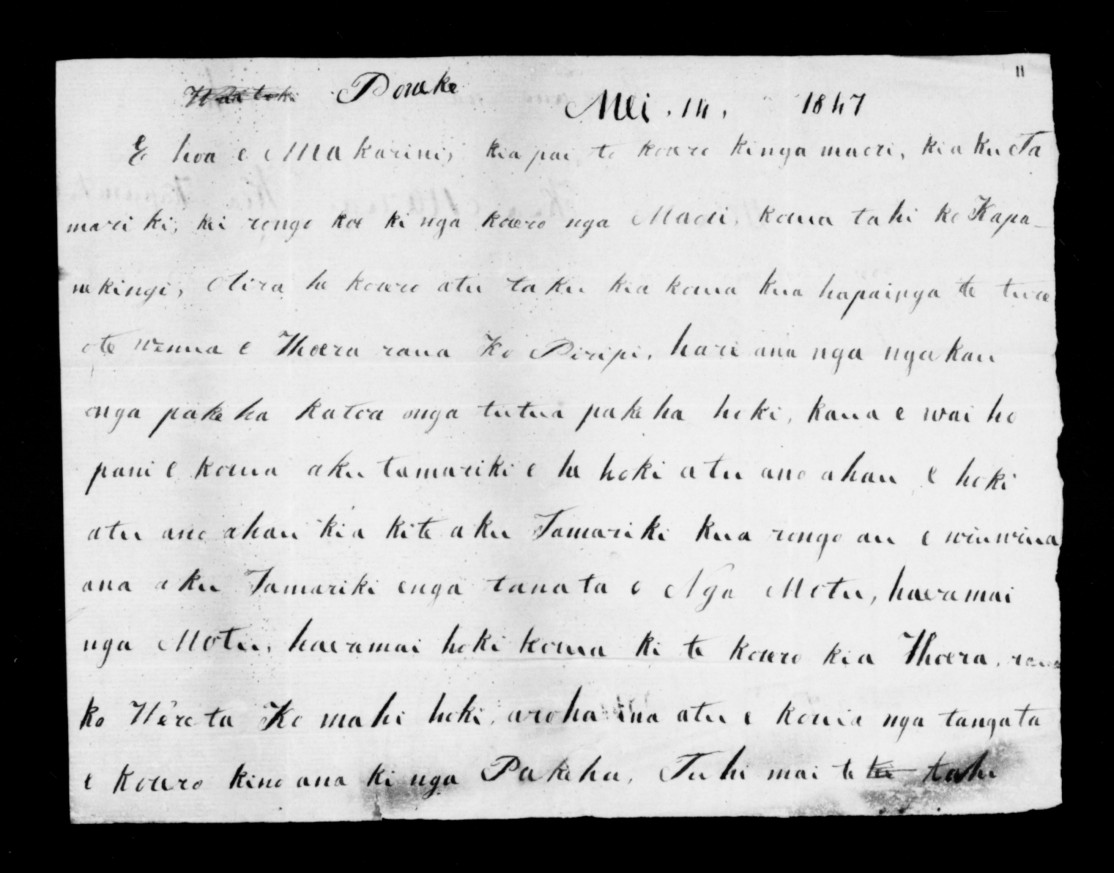 11
Porake
Mei . 14 . 1847
E hoa e Makarini, kia pai te korero kinga maori, kia ku Ta
mariki, kei rongo koe ki nga korero nga Maori. koma tahi ko Kapa-
nekingi, Otira he korero atu taku kia koma kua hapainga te ture
ote wenua e Thoera rana ko Piripi, hari ana nga ngakau
onga pakeha katoa onga tutua pakeha hoki, kana e wai ho
pani e koma aku tamariki e ha hoki atu ano ahau e hoki
atu ano ahau kia kite aku Tamariki kua rongo au e wiuwiua
ana aku Tamariki enga tanata o Nga Motu, haeramai
nga Motu, haeramai hoki koma ki te korero kia Thoera, rana
ko Wireta Ko mahi hoki, aroha ina atu e koma nga tangata
e korero kino ana ki nga Pakeha. Tuhi mai te tahi